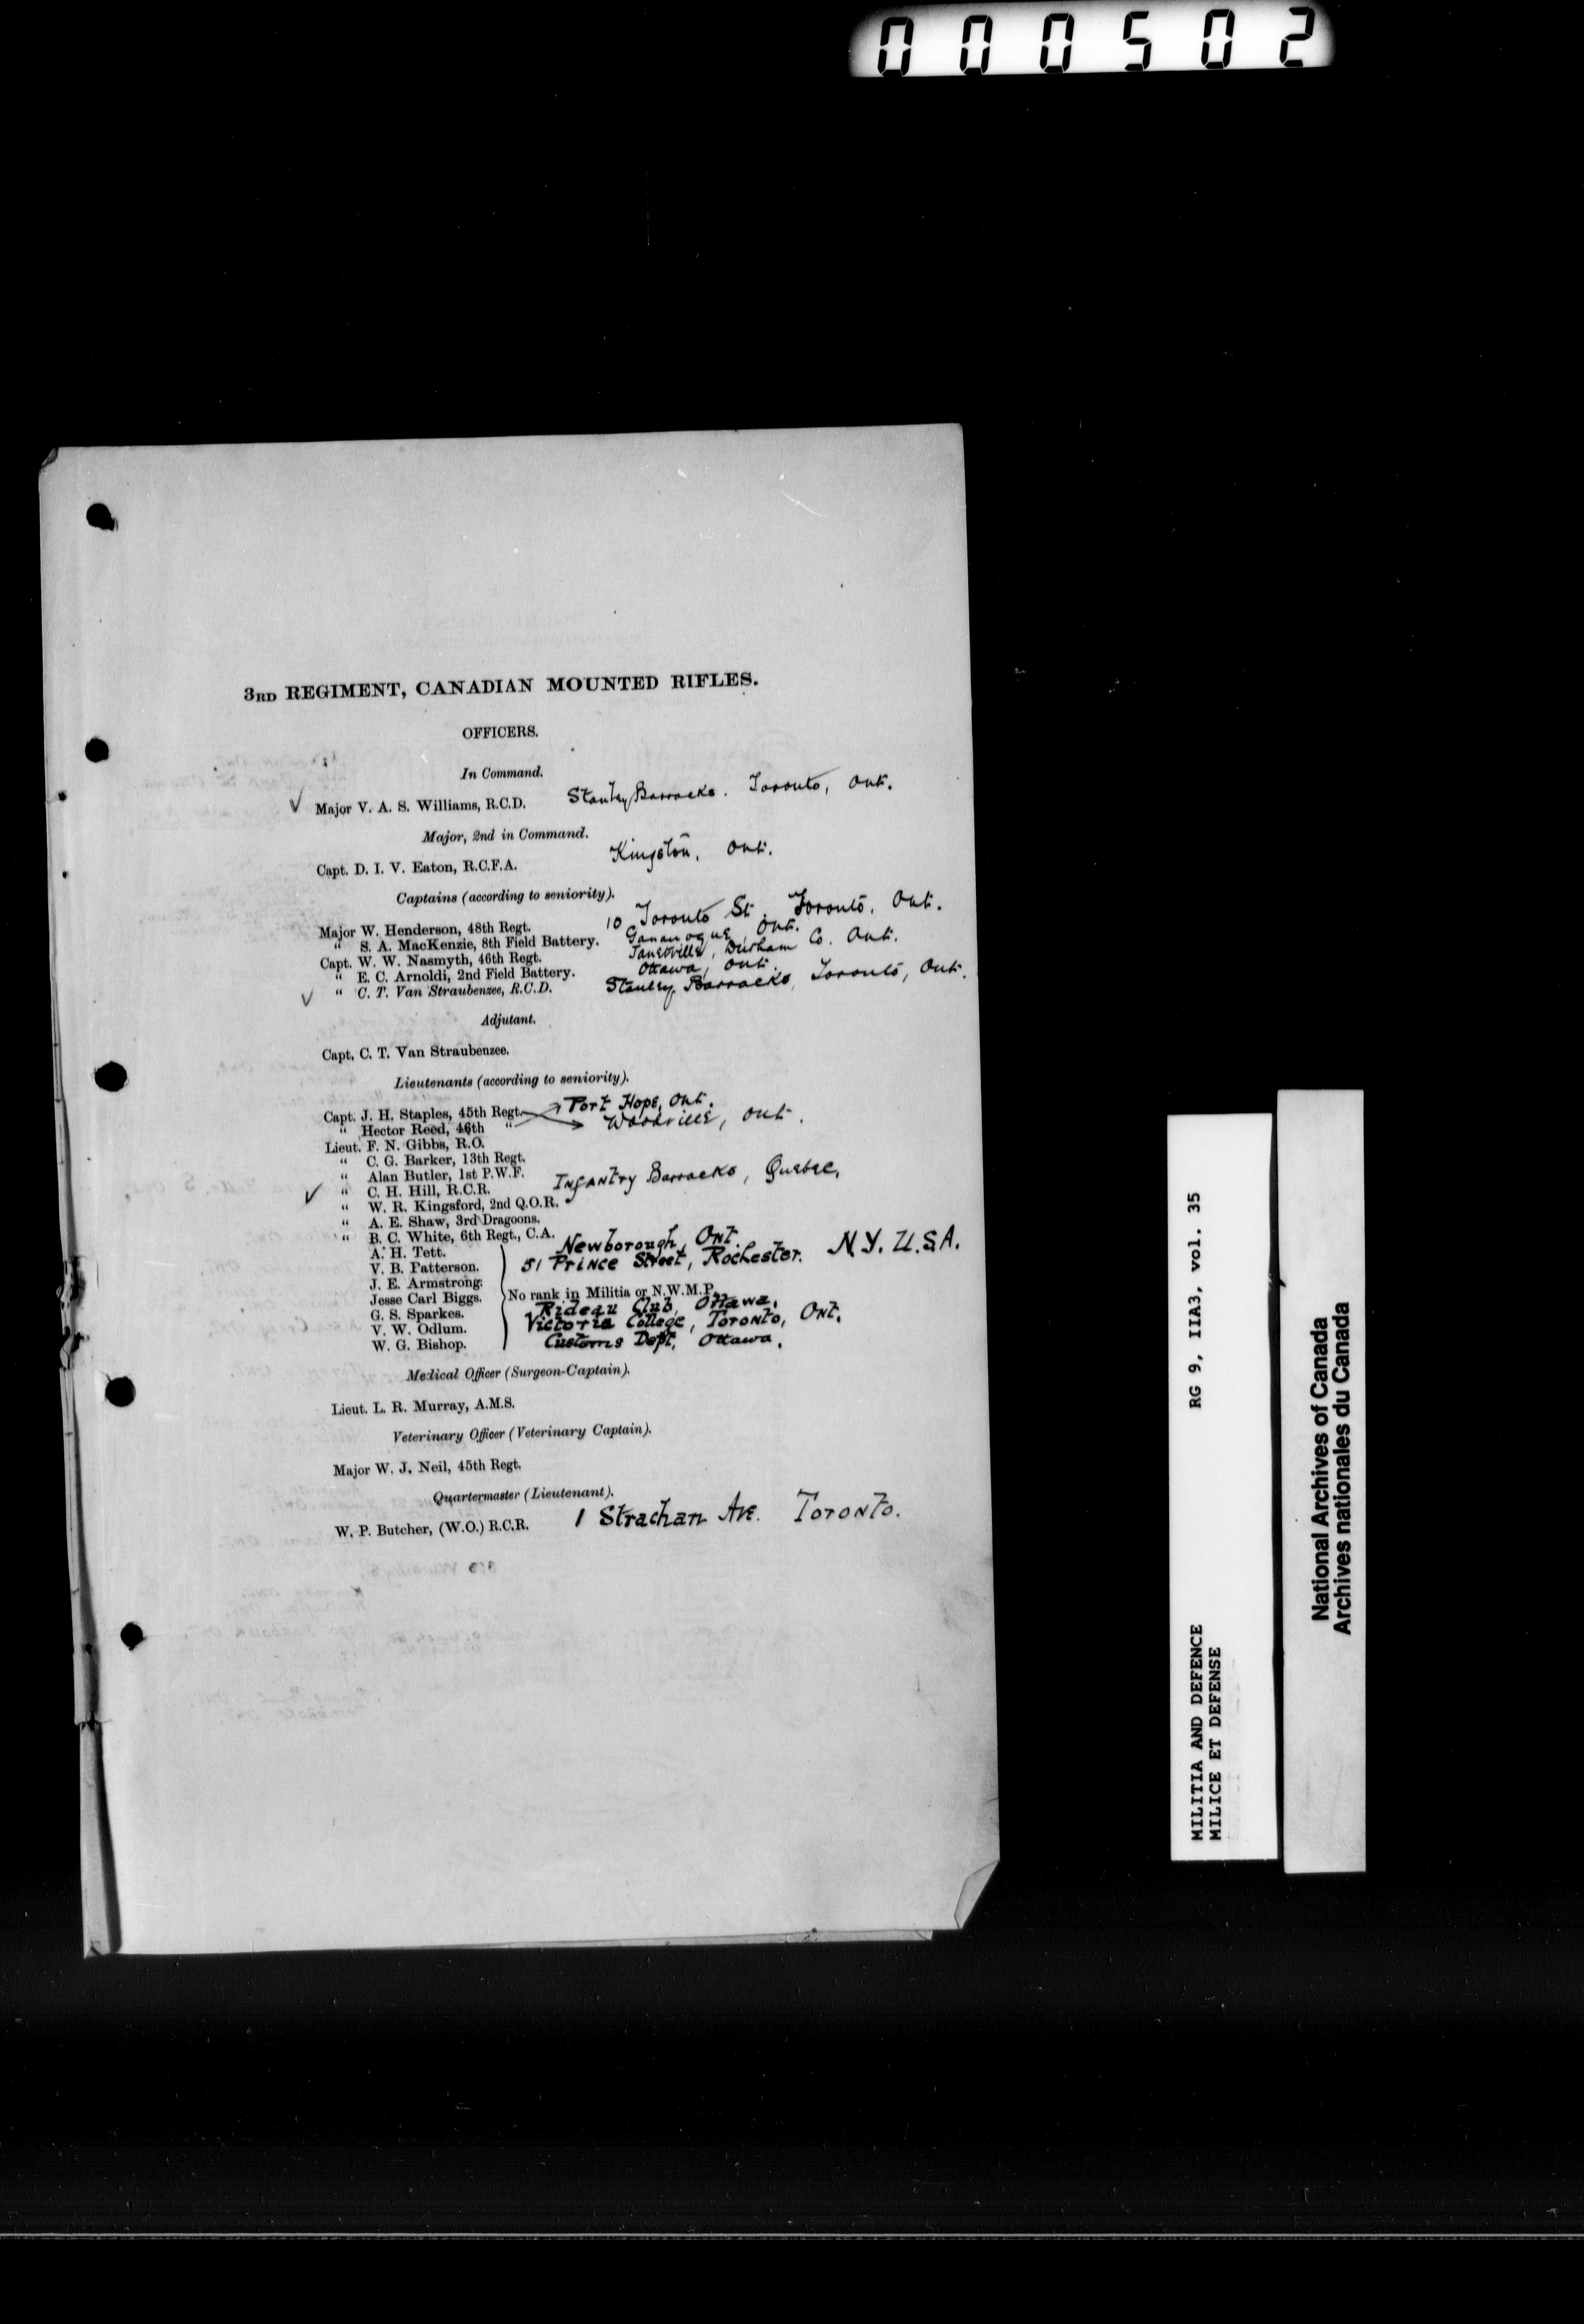 000502
3RD REGIMENT, CANADIAN MOUNTED RIFLES.
OFFICERS.
In Command.
✓ Major V. A. S. Williams, R.C.D. Stanley Barracks. Toronto, Ont.
Major, 2nd in Command.
Capt. D. I. V. Eaton, R.C.F.A. Kingston, Ont.
Captains (according to seniority).
Major W. Henderson, 48th Regt. 10 Toronto St. Toronto, Ont.
" S. A. MacKenzie, 8th Field Battery. Gananoque, Ont.
Capt. W. W. Nasmyth, 46th Regt. Janetville, Durham Co. Ont.
" E. C. Arnoldi, 2nd Field Battery. Ottawa, Ont.
✓ " C. T. Van Straubenzee, R.C.D. Stanley Barracks, Toronto, Ont.
Adjutant.
Capt. C. T. Van Straubenzee.
Lieutenants (according to seniority).
Capt. J. H. Staples, 45th Regt. Port Hope, Ont.
" Hector Reed, 46th " Woodville, Ont.
Lieut. F. N. Gibbs, R.O.
" C. G. Barker, 13th Regt.
" Alan Butler, 1st P.W.F.
✓ " C. H. Hill, R.C.R. Infantry Barracks, Quebec,
" W. R. Kingsford, 2nd Q.O.R.
" A. E. Shaw, 3rd Dragoons.
" B. C. White, 6th Regt., C.A.
A. H. Tett. Newborough, Ont.
V. B. Patterson. 51 Prince Street, Rochester. N.Y. U.S.A.
J. E. Armstrong.
Jesse Carl Biggs. No rank in Militia or N.W.M.P.
G. S. Sparkes. Rideau Club, Ottawa.
V. W. Odlum. Victoria College, Toronto, Ont.
W. G. Bishop. Customs Dept. Ottawa.
Medical Officer (Surgeon-Captain).
Lieut. L. R. Murray, A.M.S.
Veterinary Officer (Veterinary Captain).
Major W. J. Neil, 45th Regt.
Quartermaster (Lieutenant).
W. P. Butcher, (W.O.) R.C.R. 1 Strachan Ave. Toronto.
MILITIA AND DEFENCE RG 9, IIA3, vol. 35
MILICE ET DEFENSE
National Archives of Canada
Archives nationales du Canada